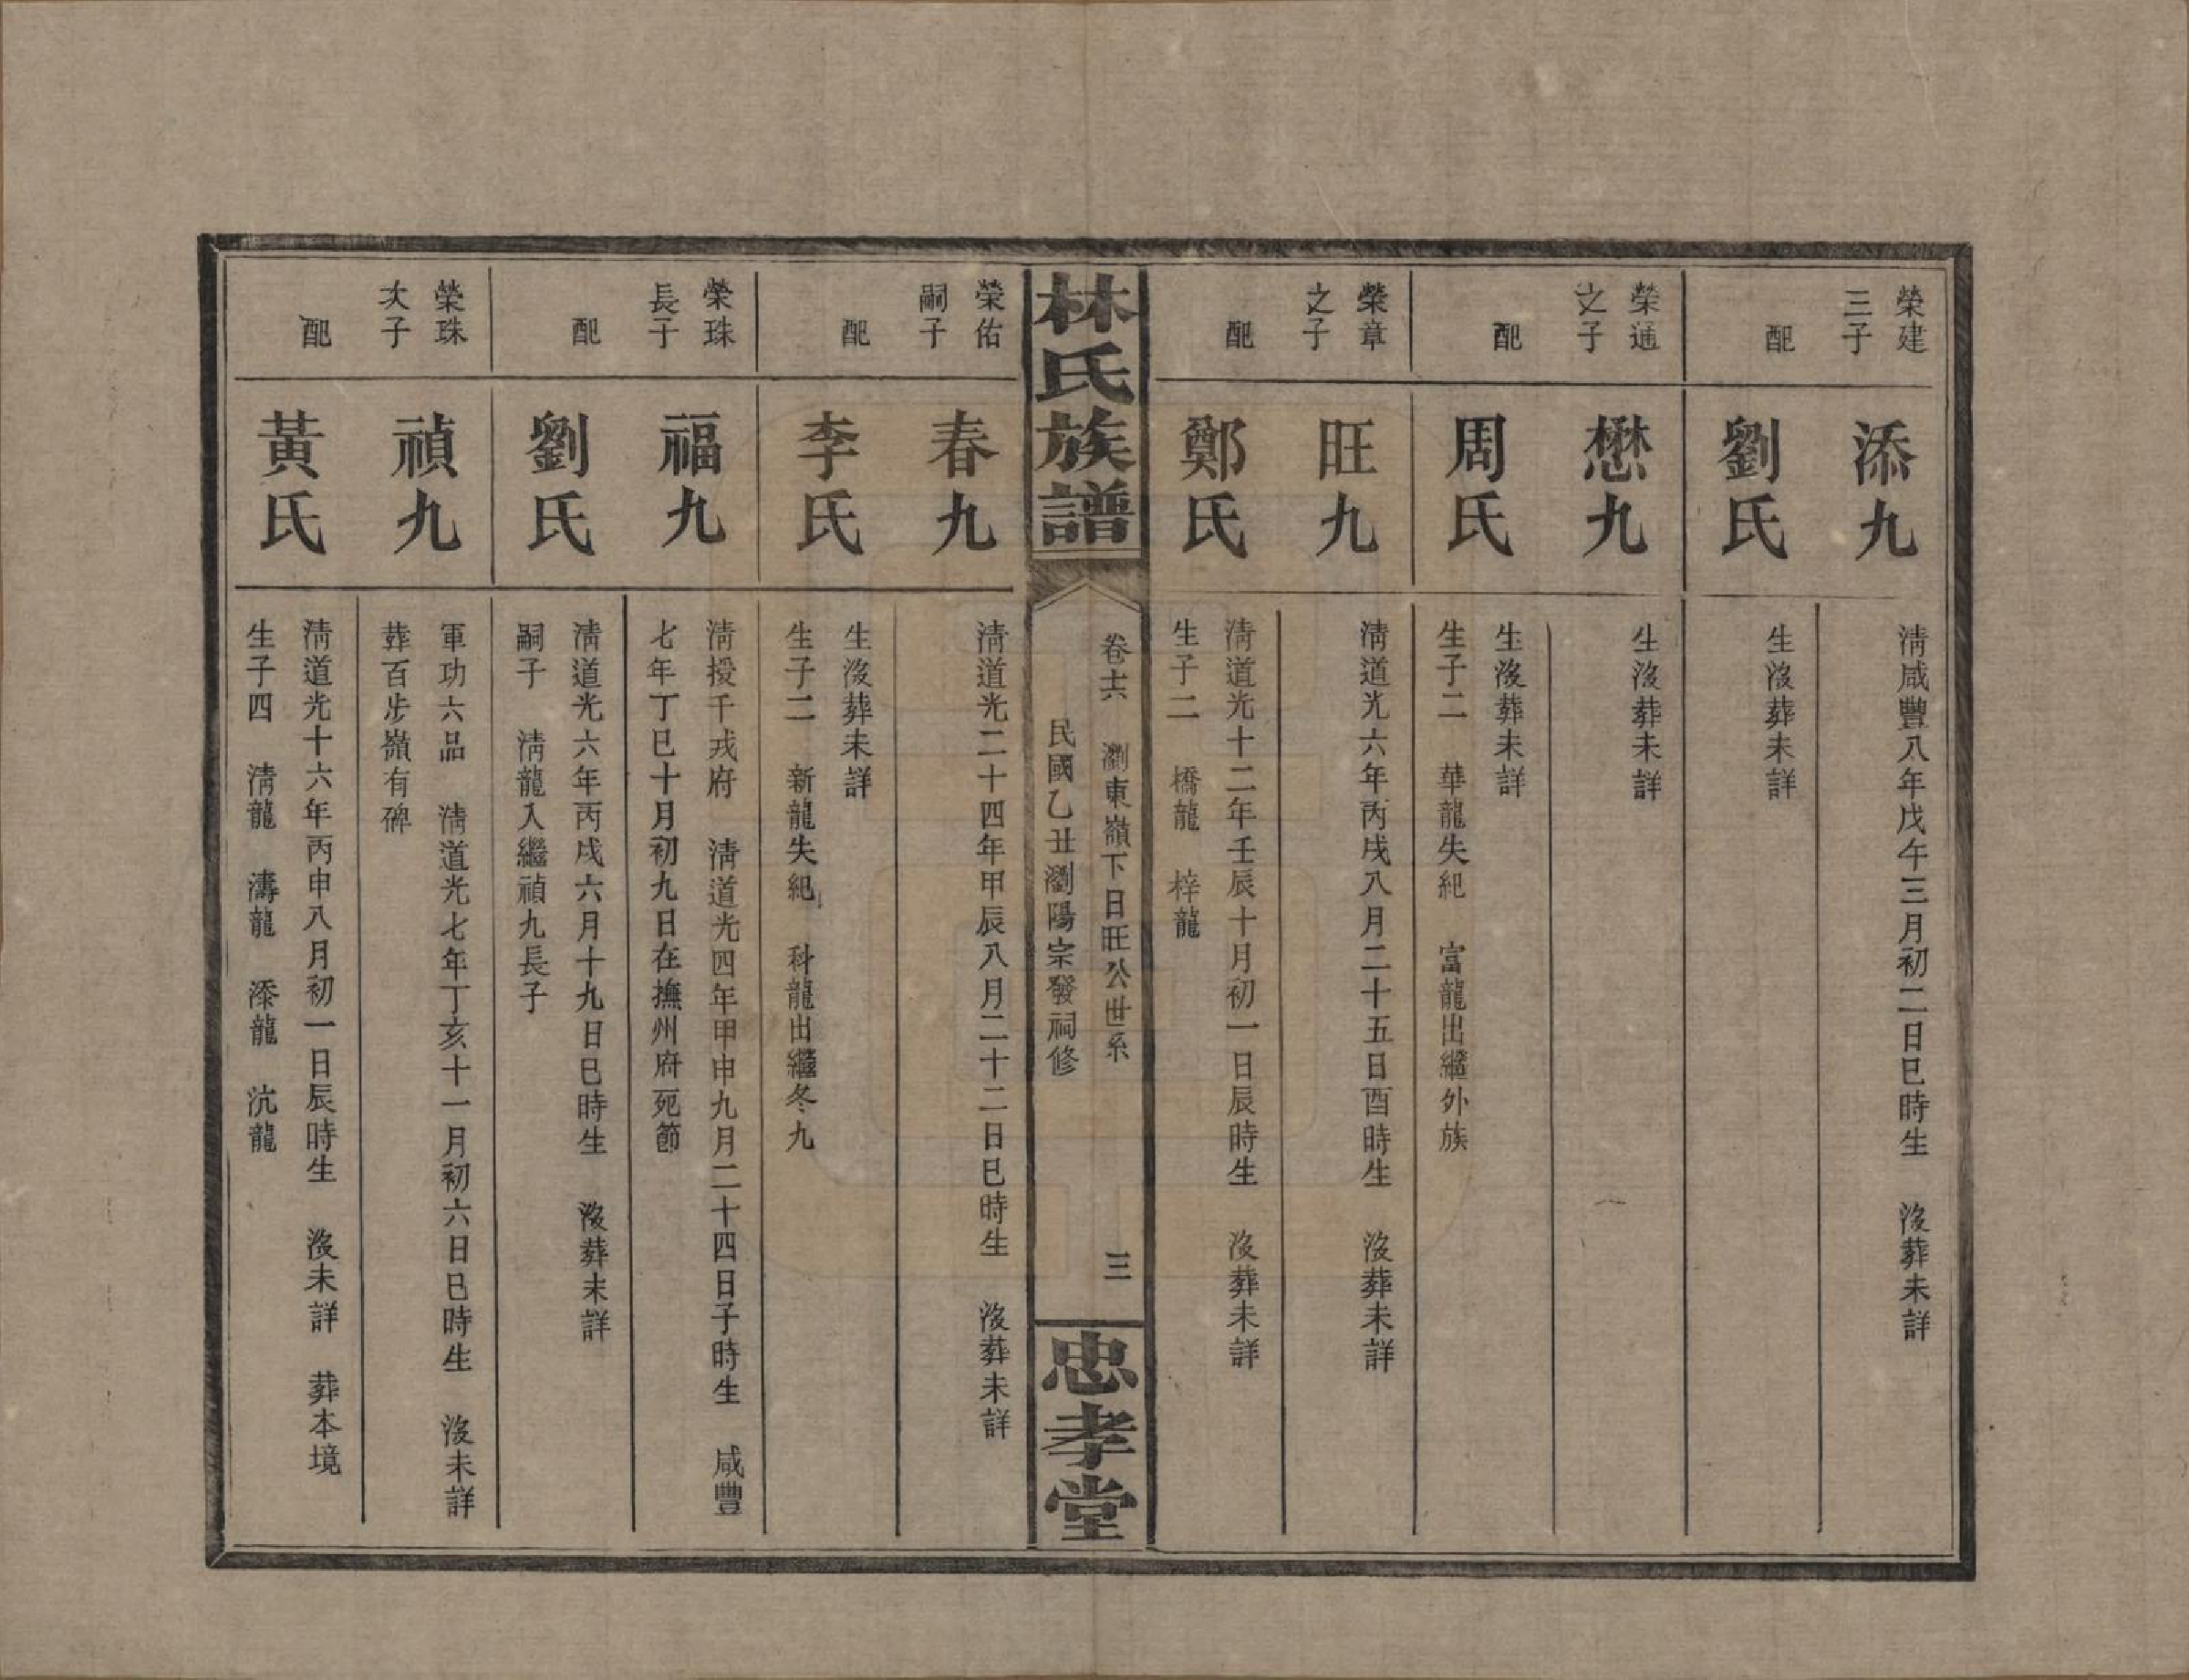 榮建
三子
添九
清咸豐八年戊午三月初二日巳時生　沒葬未詳
配
劉氏
生沒葬未詳
榮通
之子
懋九
生沒葬未詳
配
周氏
生沒葬未詳
生子二　華龍失紀　富龍出繼外族
榮章
之子
旺九
清道光六年丙戌八月二十五日酉時生　沒葬未詳
配
鄭氏
清道光十二年壬辰十月初一日辰時生　沒葬未詳
生子二　橋龍　梓龍
林氏族譜
卷十六　瀏東嶺下日旺公世系　三
民國乙丑瀏陽宗發祠修
忠孝堂
榮佑
嗣子
春九
清道光二十四年甲辰八月二十二日巳時生　沒葬未詳
配
李氏
生沒葬未詳
生子二　新龍失紀　科龍出繼冬九
榮珠
長子
福九
清授千戎府　清道光四年甲申九月二十四日子時生　咸豐
七年丁巳十月初九日在撫州府死節
配
劉氏
清道光六年丙戌六月十九日巳時生　沒葬未詳
嗣子　清龍入繼禎九長子
榮珠
次子
禎九
軍功六品　清道光七年丁亥十一月初六日巳時生　沒未詳
葬百步嶺有碑
配
黃氏
清道光十六年丙申八月初一日辰時生　沒未詳　葬本境
生子四　清龍　濤龍　添龍　沆龍